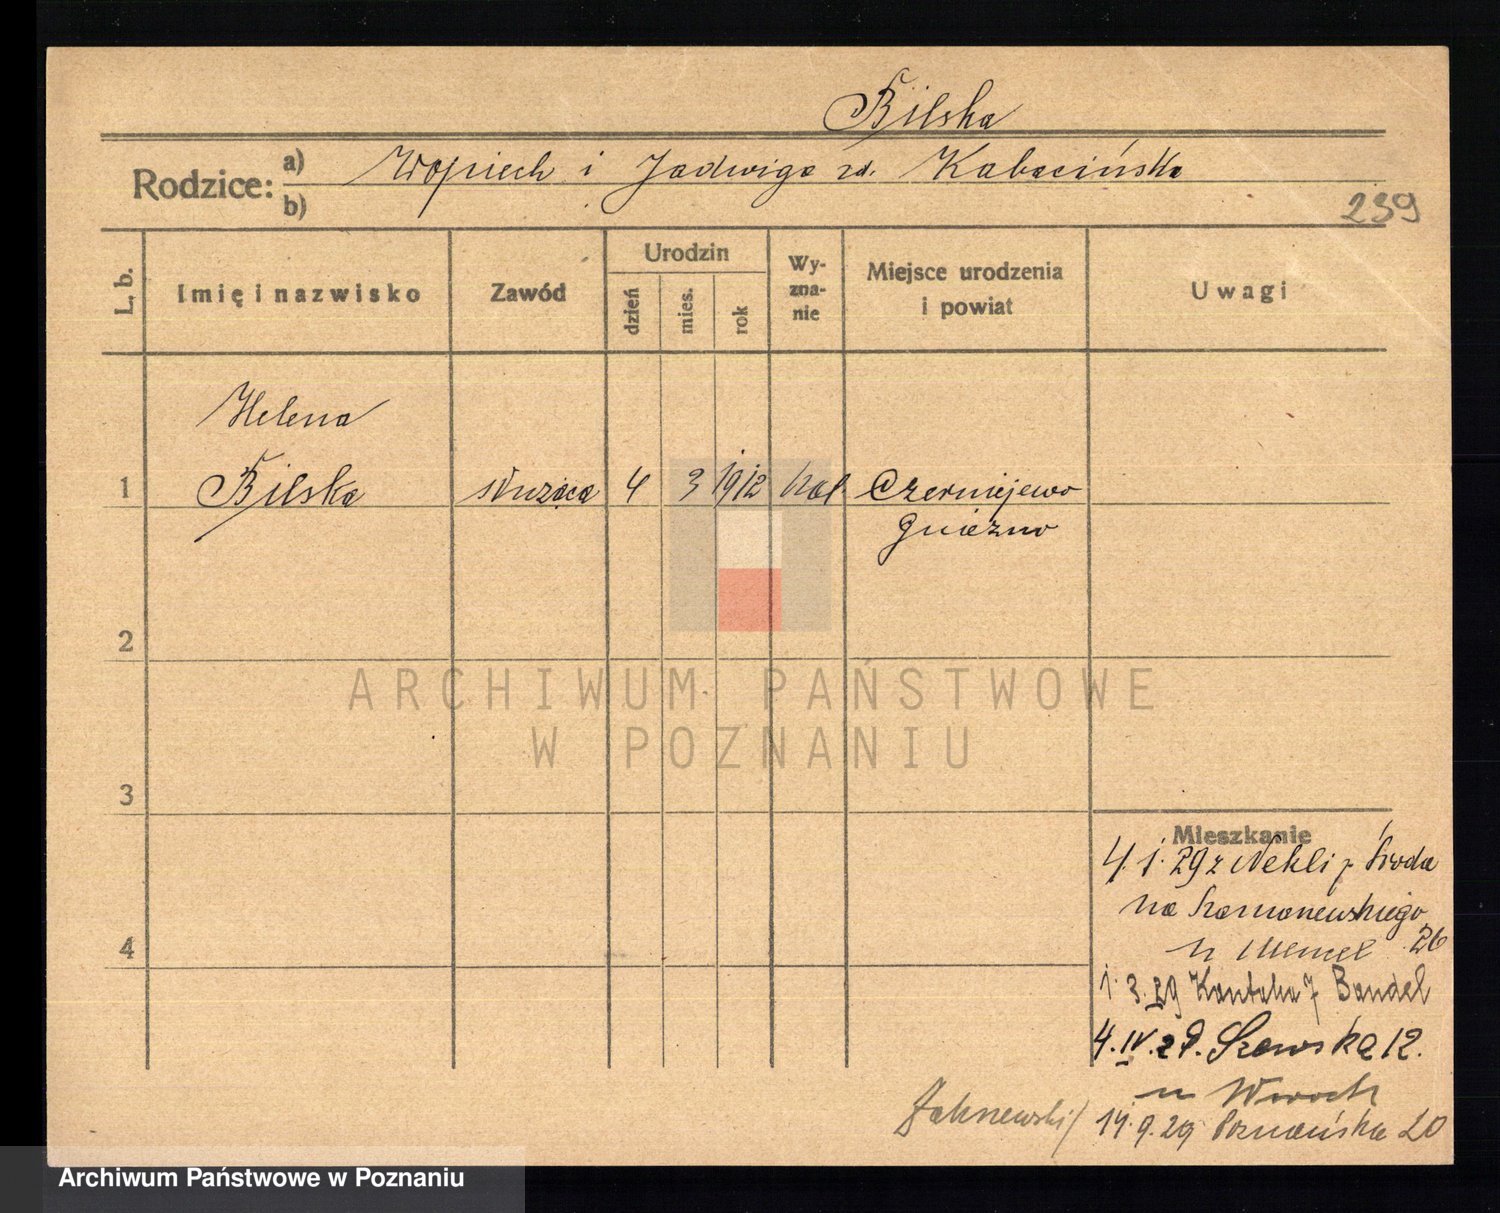 Bilska
Rodzice: a) Wojciech i Jadwiga zd. Kabacińska
b)
239
L. b.
Imię i nazwisko
Zawód
Urodzin
dzień
mies.
rok
Wy-
zna-
nie
Miejsce urodzenia
i powiat
Uwagi
Helena
1 Bilska służąca 4 3 1912 kat. Czerniejewo
Gniezno
2
3
4
Mieszkanie
4.1.29 z Nekli p. Środa
na Szamarzewskiego 26
u Mencel
1.3.29 Kantaka 7 Bandel
4.IV.29. Szewska 12.
u Woroch
/ 14.9.29 Poznańska 20
ARCHIWUM PAŃSTWOWE
W POZNANIU
Archiwum Państwowe w Poznaniu